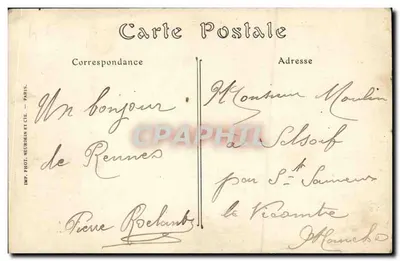 Carte Postale
Correspondance
Adresse
Un bonjour
de Rennes
Pierre
Monsieur Moulin
à Selsoif
par St Sauveur
le Vicomte
Manche
IMP. PHOT. NEURDEIN ET CIE. — PARIS.
CPAPHIL